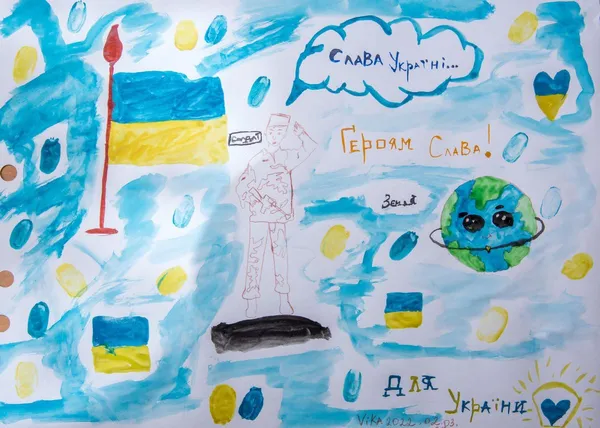 Слава Україні...
Солдат
Героям Слава!
Земля
Для
України
Vika 2022. 02. 03.